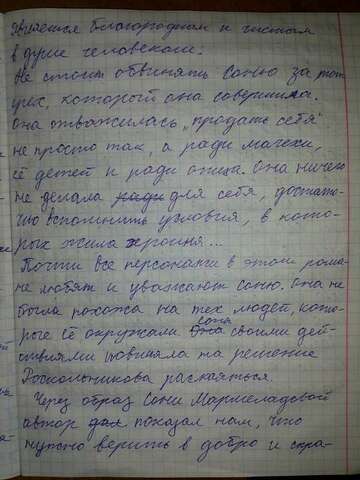 является благородным и чистым
в душе человеком.
Не стоит обвинять Соню за тот
грех, который она совершила.
Она отважилась "продать себя"
не просто так, а ради мачехи,
её детей и ради отца. Она ничего
не делала для себя, достато-
чно вспомнить условия, в кото-
рых жила героиня...
Почти все персонажи в этом рома-
не любят и уважают Соню. Она не
была похожа на тех людей, кото-
рые её окружали. Соня своими дей-
ствиями повлияла на решение
Раскольникова раскаяться.
Через образ Сони Мармеладовой
автор показал нам, что
нужно верить в добро и спра-